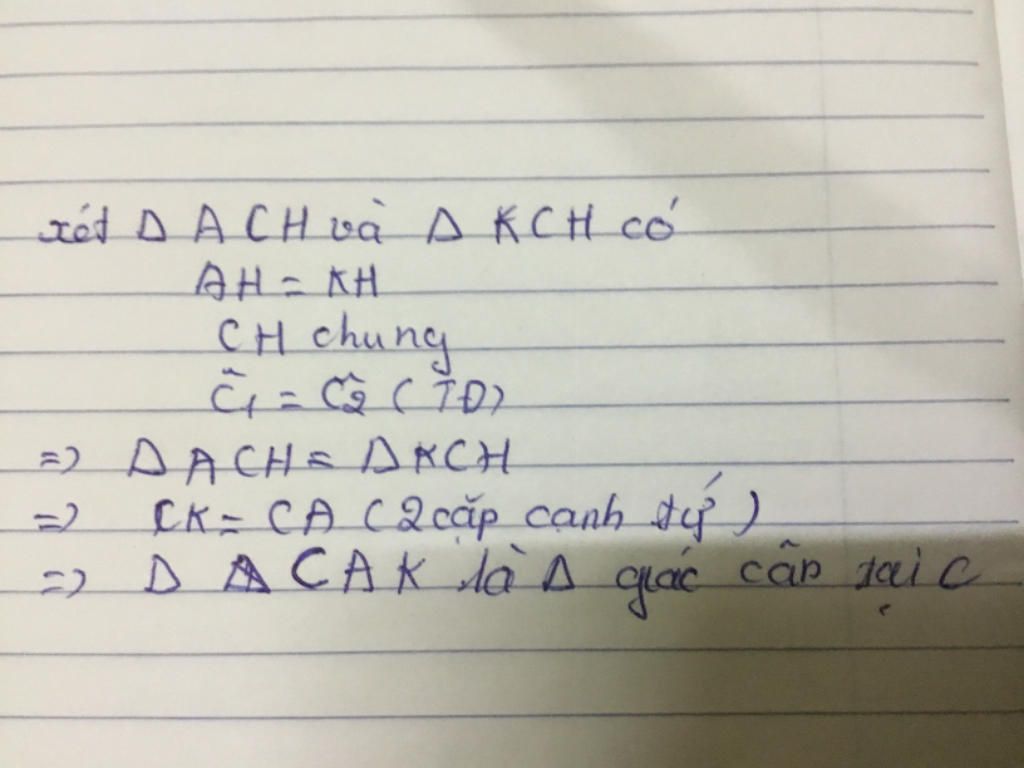 xét Δ ACH và Δ KCH có
AH = KH
CH chung
Ĉ1 = Ĉ2 (TĐ)
=> Δ ACH = Δ KCH
=> CK = CA (2 cặp cạnh tứ)
=> Δ CAK là Δ giác cân tại C